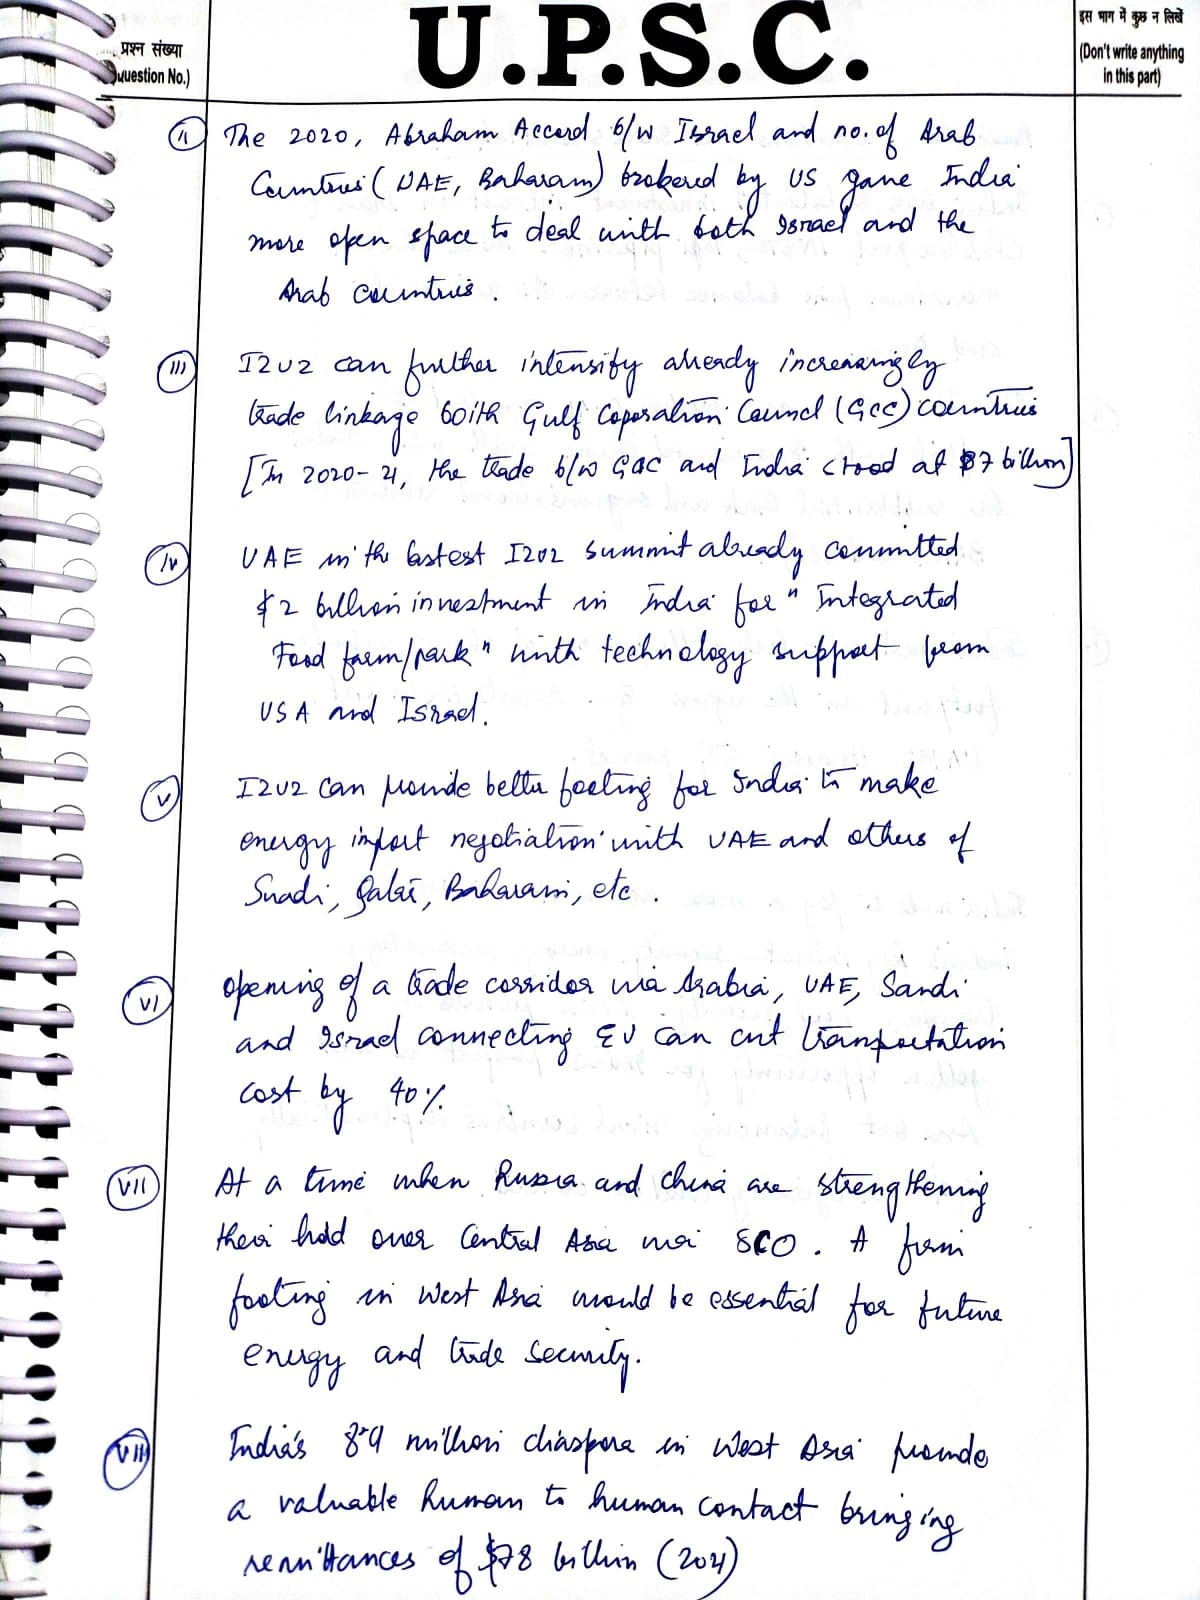 प्रश्न संख्या
(Question No.)
U.P.S.C.
इस भाग में कुछ न लिखें
(Don't write anything
in this part)
II The 2020, Abraham Accord b/w Israel and no. of Arab
Countries (UAE, Baharain) brokered by US gave India
more open space to deal with both Israel and the
Arab countries.
III I2U2 can further intensify already increasingly
trade linkage with Gulf Coporation Council (GCC) countries
[In 2020-21, the trade b/w GCC and India stood at $87 billion]
IV UAE in the lastest I2U2 summit already committed
$2 billion investment in India for "Integrated
Food farm/park" with technology support from
USA and Israel.
V I2U2 can provide better footing for India to make
energy import negotiation with UAE and others of
Suadi, Qatar, Baharain, etc.
VI opening of a trade corridor via Arabia, UAE, Saudi
and Israel connecting EU can cut transportation
cost by 40%
VII At a time when Russia and China are strengthening
their hold over Central Asia via SCO. A firm
footing in West Asia would be essential for future
energy and trade security.
VIII India's 8-9 million diaspora in West Asia provide
a valuable human to human contact bringing
remittances of $78 billion (2021)